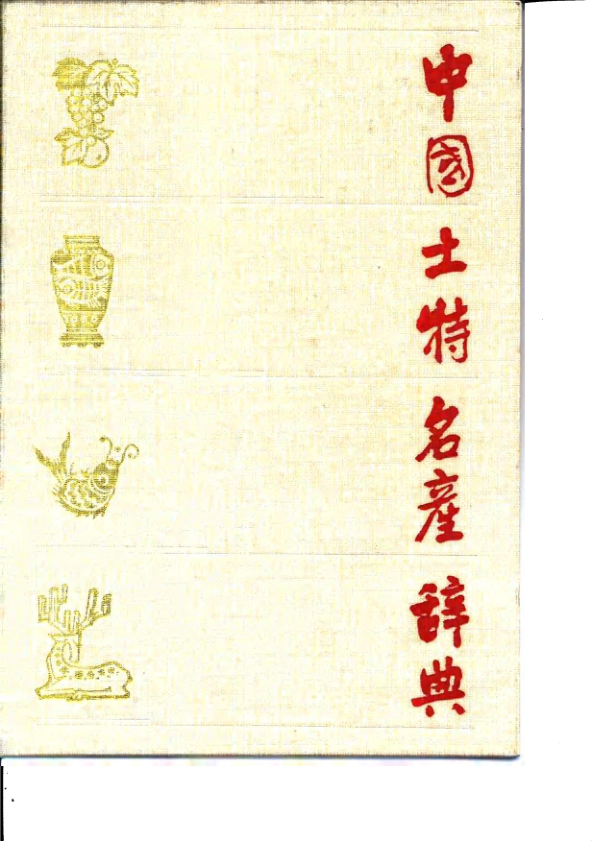 中国土特名産辞典